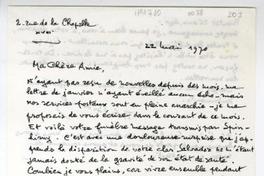 2. rue de la Chapelle
XVIIIe
22 mai 1970
Ma Chère Amie,
N'ayant pas reçu de nouvelles depuis des mois, ma
lettre de janvier n'ayant éveillé aucun écho - mais
nos services postaux sont en pleine anarchie - je me
proposais de vous écrire dans le courant de ce mois.
Et voilà votre funèbre message transmis par
C'est avec une douloureuse surprise que j'ap-
prends la disparition de votre cher Salvador. Je n'étant
jamais douté de la gravité de son état de santé.
Combien je vous plains, car vivre ensemble pendant